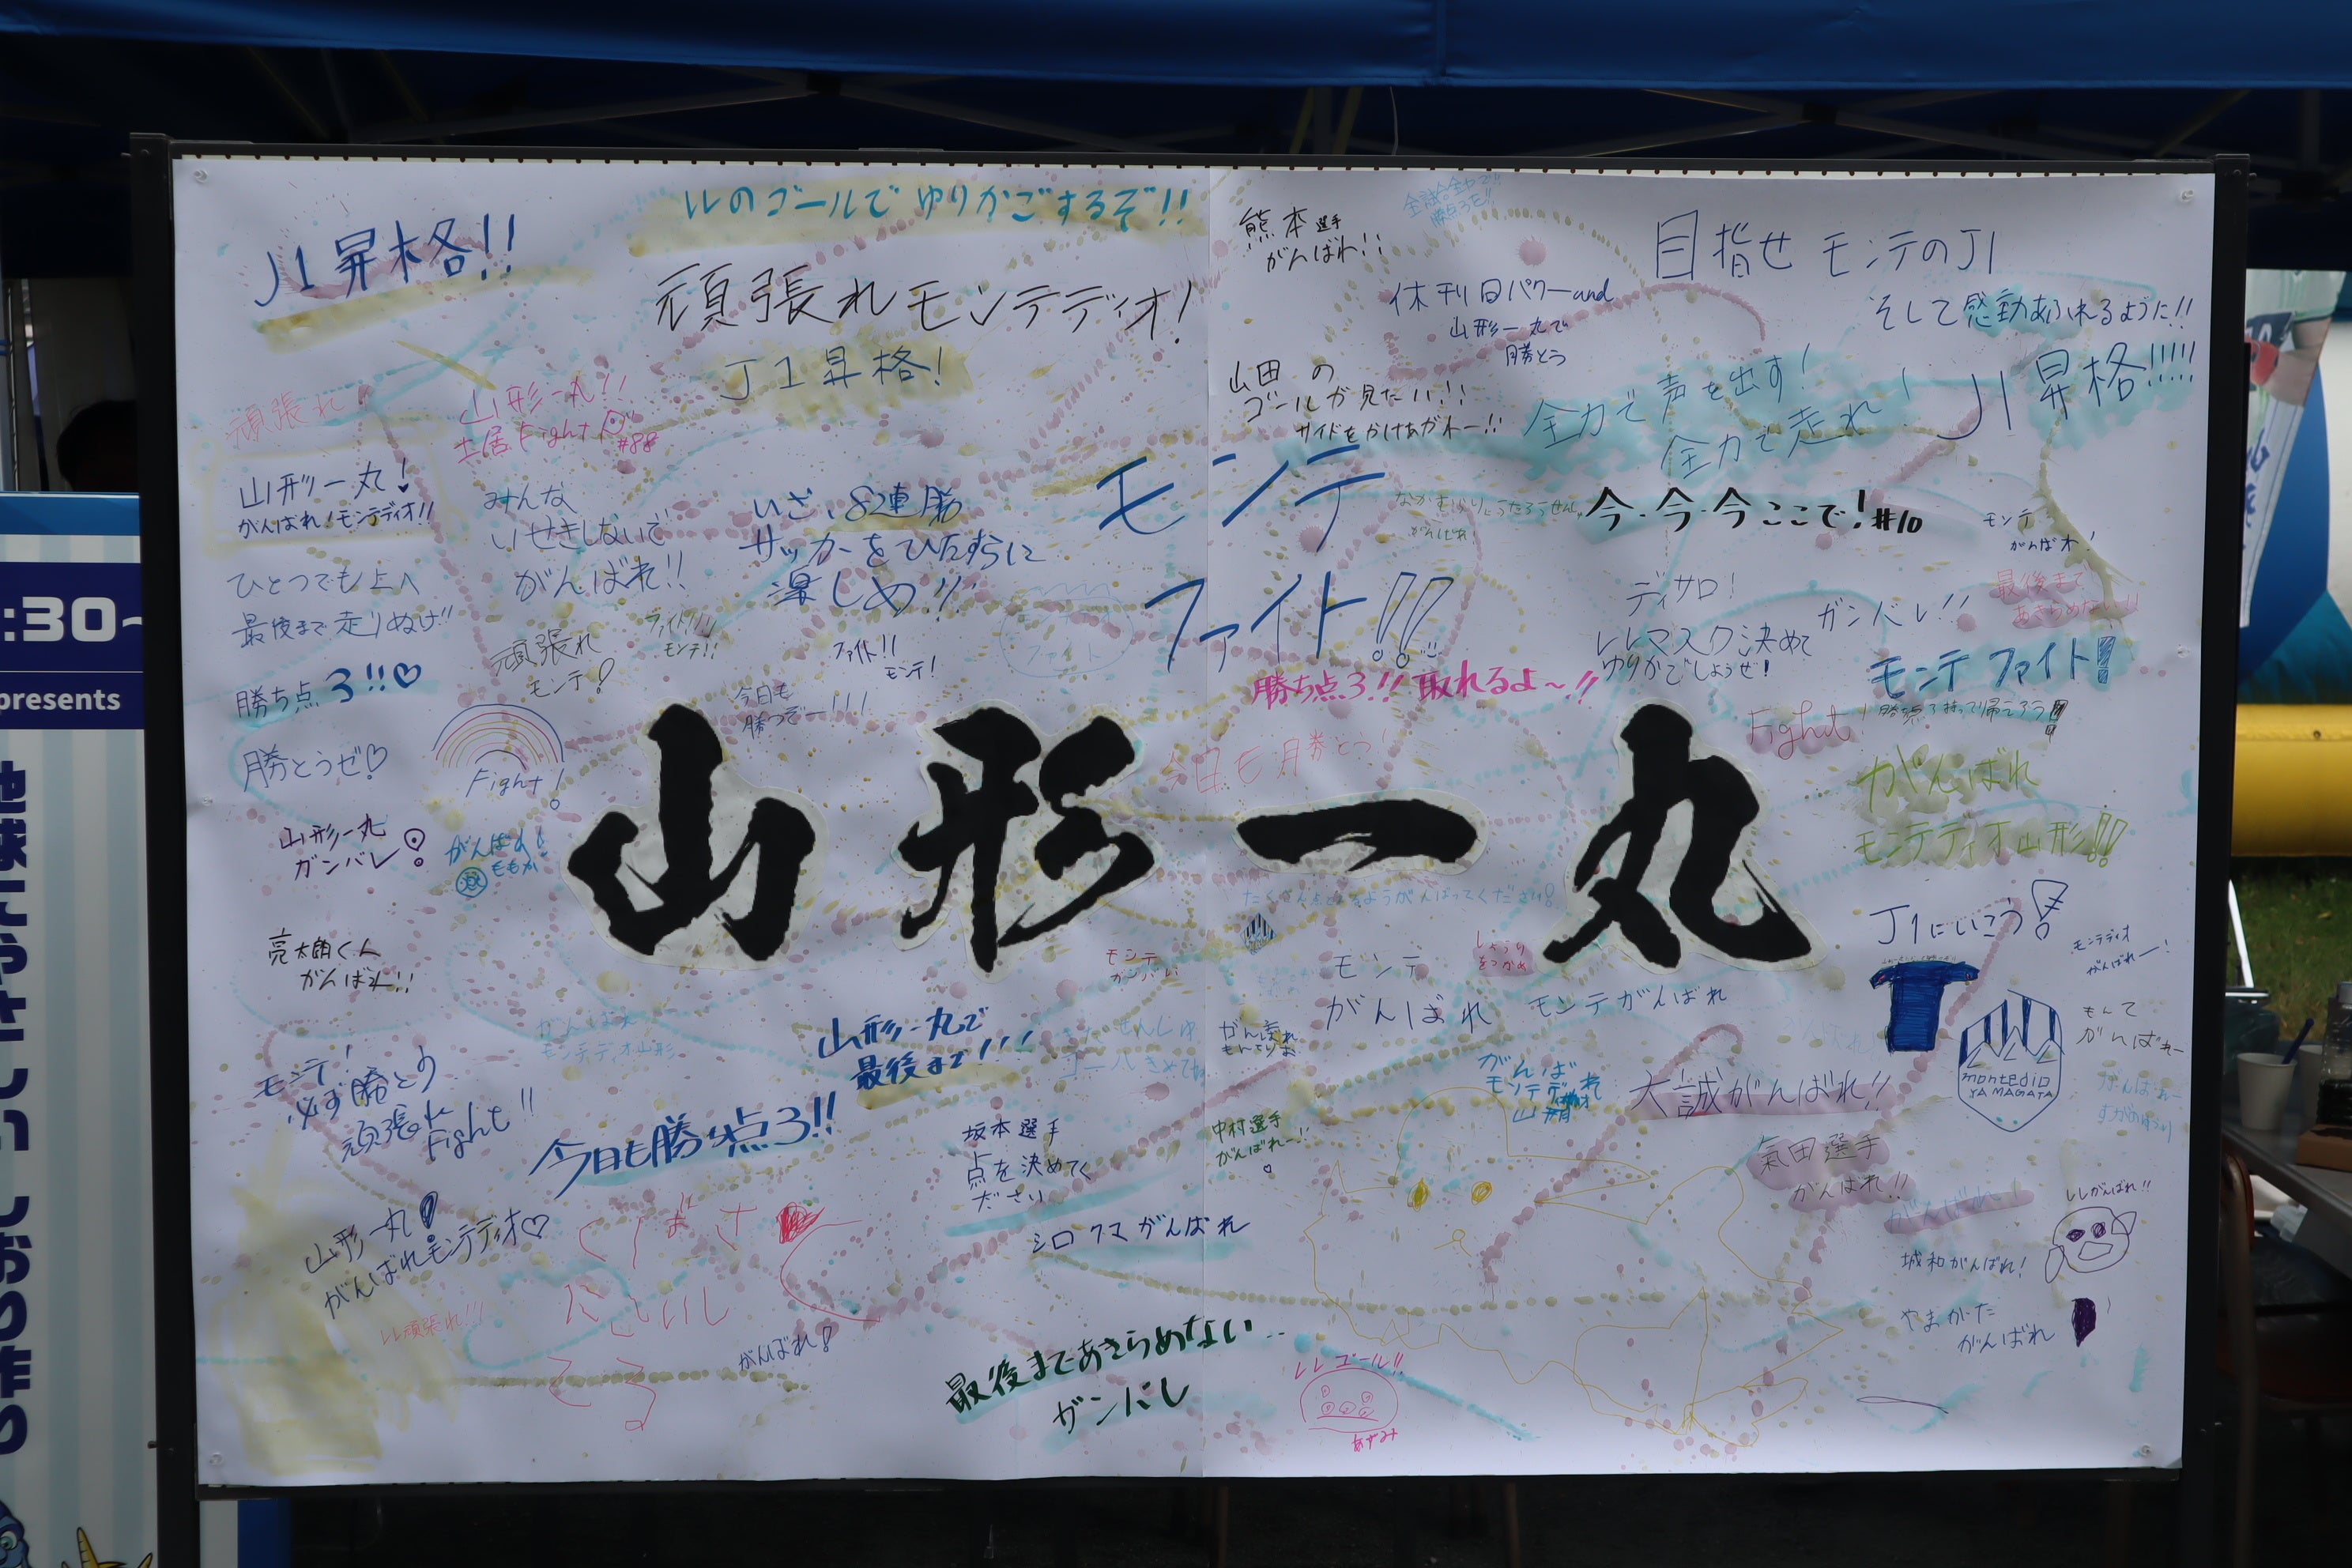 J1昇格!!
レレのゴールでゆりかごするぞ!!
頑張れモンテディオ!
J1昇格!
熊本選手
がんばれ!!
休刊日パワーand
山形一丸で
勝とう
目指せ モンテのJ1
そして感動あふれるように!!
J1昇格!!!!!
山田の
ゴールが見たい!!
サイドをかけあがれー!!
全力で声を出す!
全力で走れ!
頑張れ!
山形一丸!!
土居Fight!
#88
山形一丸!
がんばれ!モンテディオ!!
みんな
いせきしないで
がんばれ!!
いざ、82連勝
サッカーをひたすらに
楽しめ!!
モンテ
ファイト!!
今・今・今ここで!#10
モンテ
がんばれ!
ひとつでも上へ
最後まで走りぬけ!!
頑張れ
モンテ!
ファイト!!!
モンテ!!
ファイト!!
モンテ!
ディサロ!
レレマスク決めて
ゆりかごしようぜ!
ガンバレ!!
最後まで
あきらめない!!
モンテ ファイト!
勝ち点3!!♡
今日も
勝つぞー!!!
勝ち点3!! 取れるよ~!!
Fight!
勝とうぜ♡
Fight!
今日も勝とう!
がんばれ
モンテディオ山形!!
山形一丸
ガンバレ!
がんばれ!
ももか
山形一丸
たくさん点とれるようがんばってください!
J1にいこう!
モンテディオ
がんばれー!
亮太朗くん
がんばれ!!
モンテ
ガンバレ
モンテ
がんばれ
しょうり
をつかめ
モンテがんばれ
がんばれ
モンテディオ山形
山形一丸で
最後まで!!!
montedio
YAMAGATA
もんて
がんばれー
モンテ!
必ず勝とう
頑張れ
Fight!!
今日も勝ち点3!!
坂本選手
点を決めてく
ださい
中村選手
がんばれー!!
♡
がんばれ
モンテディオ
山形
大誠がんばれ!!
氣田選手
がんばれ!!
がんばれ!
山形一丸!
がんばれモンテディオ♡
シロクマがんばれ
レレがんばれ!!
城和がんばれ!
レレ頑張れ!!!
がんばれ!
最後まであきらめない..
ガンバレ
レレゴール!!
あずみ
やまがた
がんばれ
:30~
presents
地球にやさしいしおり作り